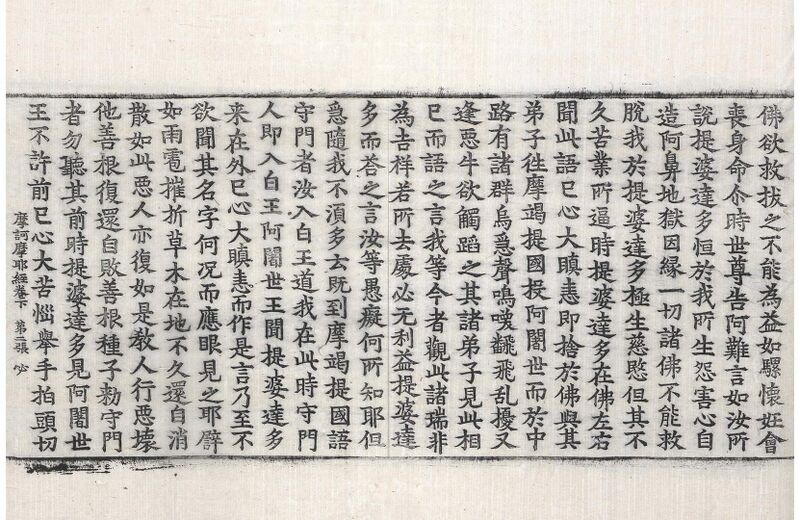 佛欲救拔之不能為益如騾懷妊會
喪身命尒時世尊告阿難言如汝所
說提婆達多恒於我所生怨害心自
造阿鼻地獄因緣一切諸佛不能救
脫我於提婆達多極生慈愍但其不
久苦業所逼時提婆達多在佛左右
聞此語已心大瞋恚即捨於佛與其
弟子徃摩竭提國投阿闍世而於中
路有諸群烏惡聲鳴喚翻飛亂擾又
逢惡牛欲觸蹈之其諸弟子見此相
已而語之言我等今者觀此諸瑞非
為吉祥若所去處必无利益提婆達
多而荅之言汝等愚癡何所知耶但
急隨我不湏多云既到摩竭提國語
守門者汝入白王道我在此時守門
人即入白王阿闍世王聞提婆達多
来在外已心大瞋恚而作是言乃至不
欲聞其名字何況而應眼見之耶譬
如雨雹摧折草木在地不久還自消
散如此惡人亦復如是教人行惡壞
他善根復還自敗善根種子勑守門
者勿聽其前時提婆達多見阿闍世
王不許前已心大苦惱舉手拍頭切
摩訶摩耶經卷下 第二張 必